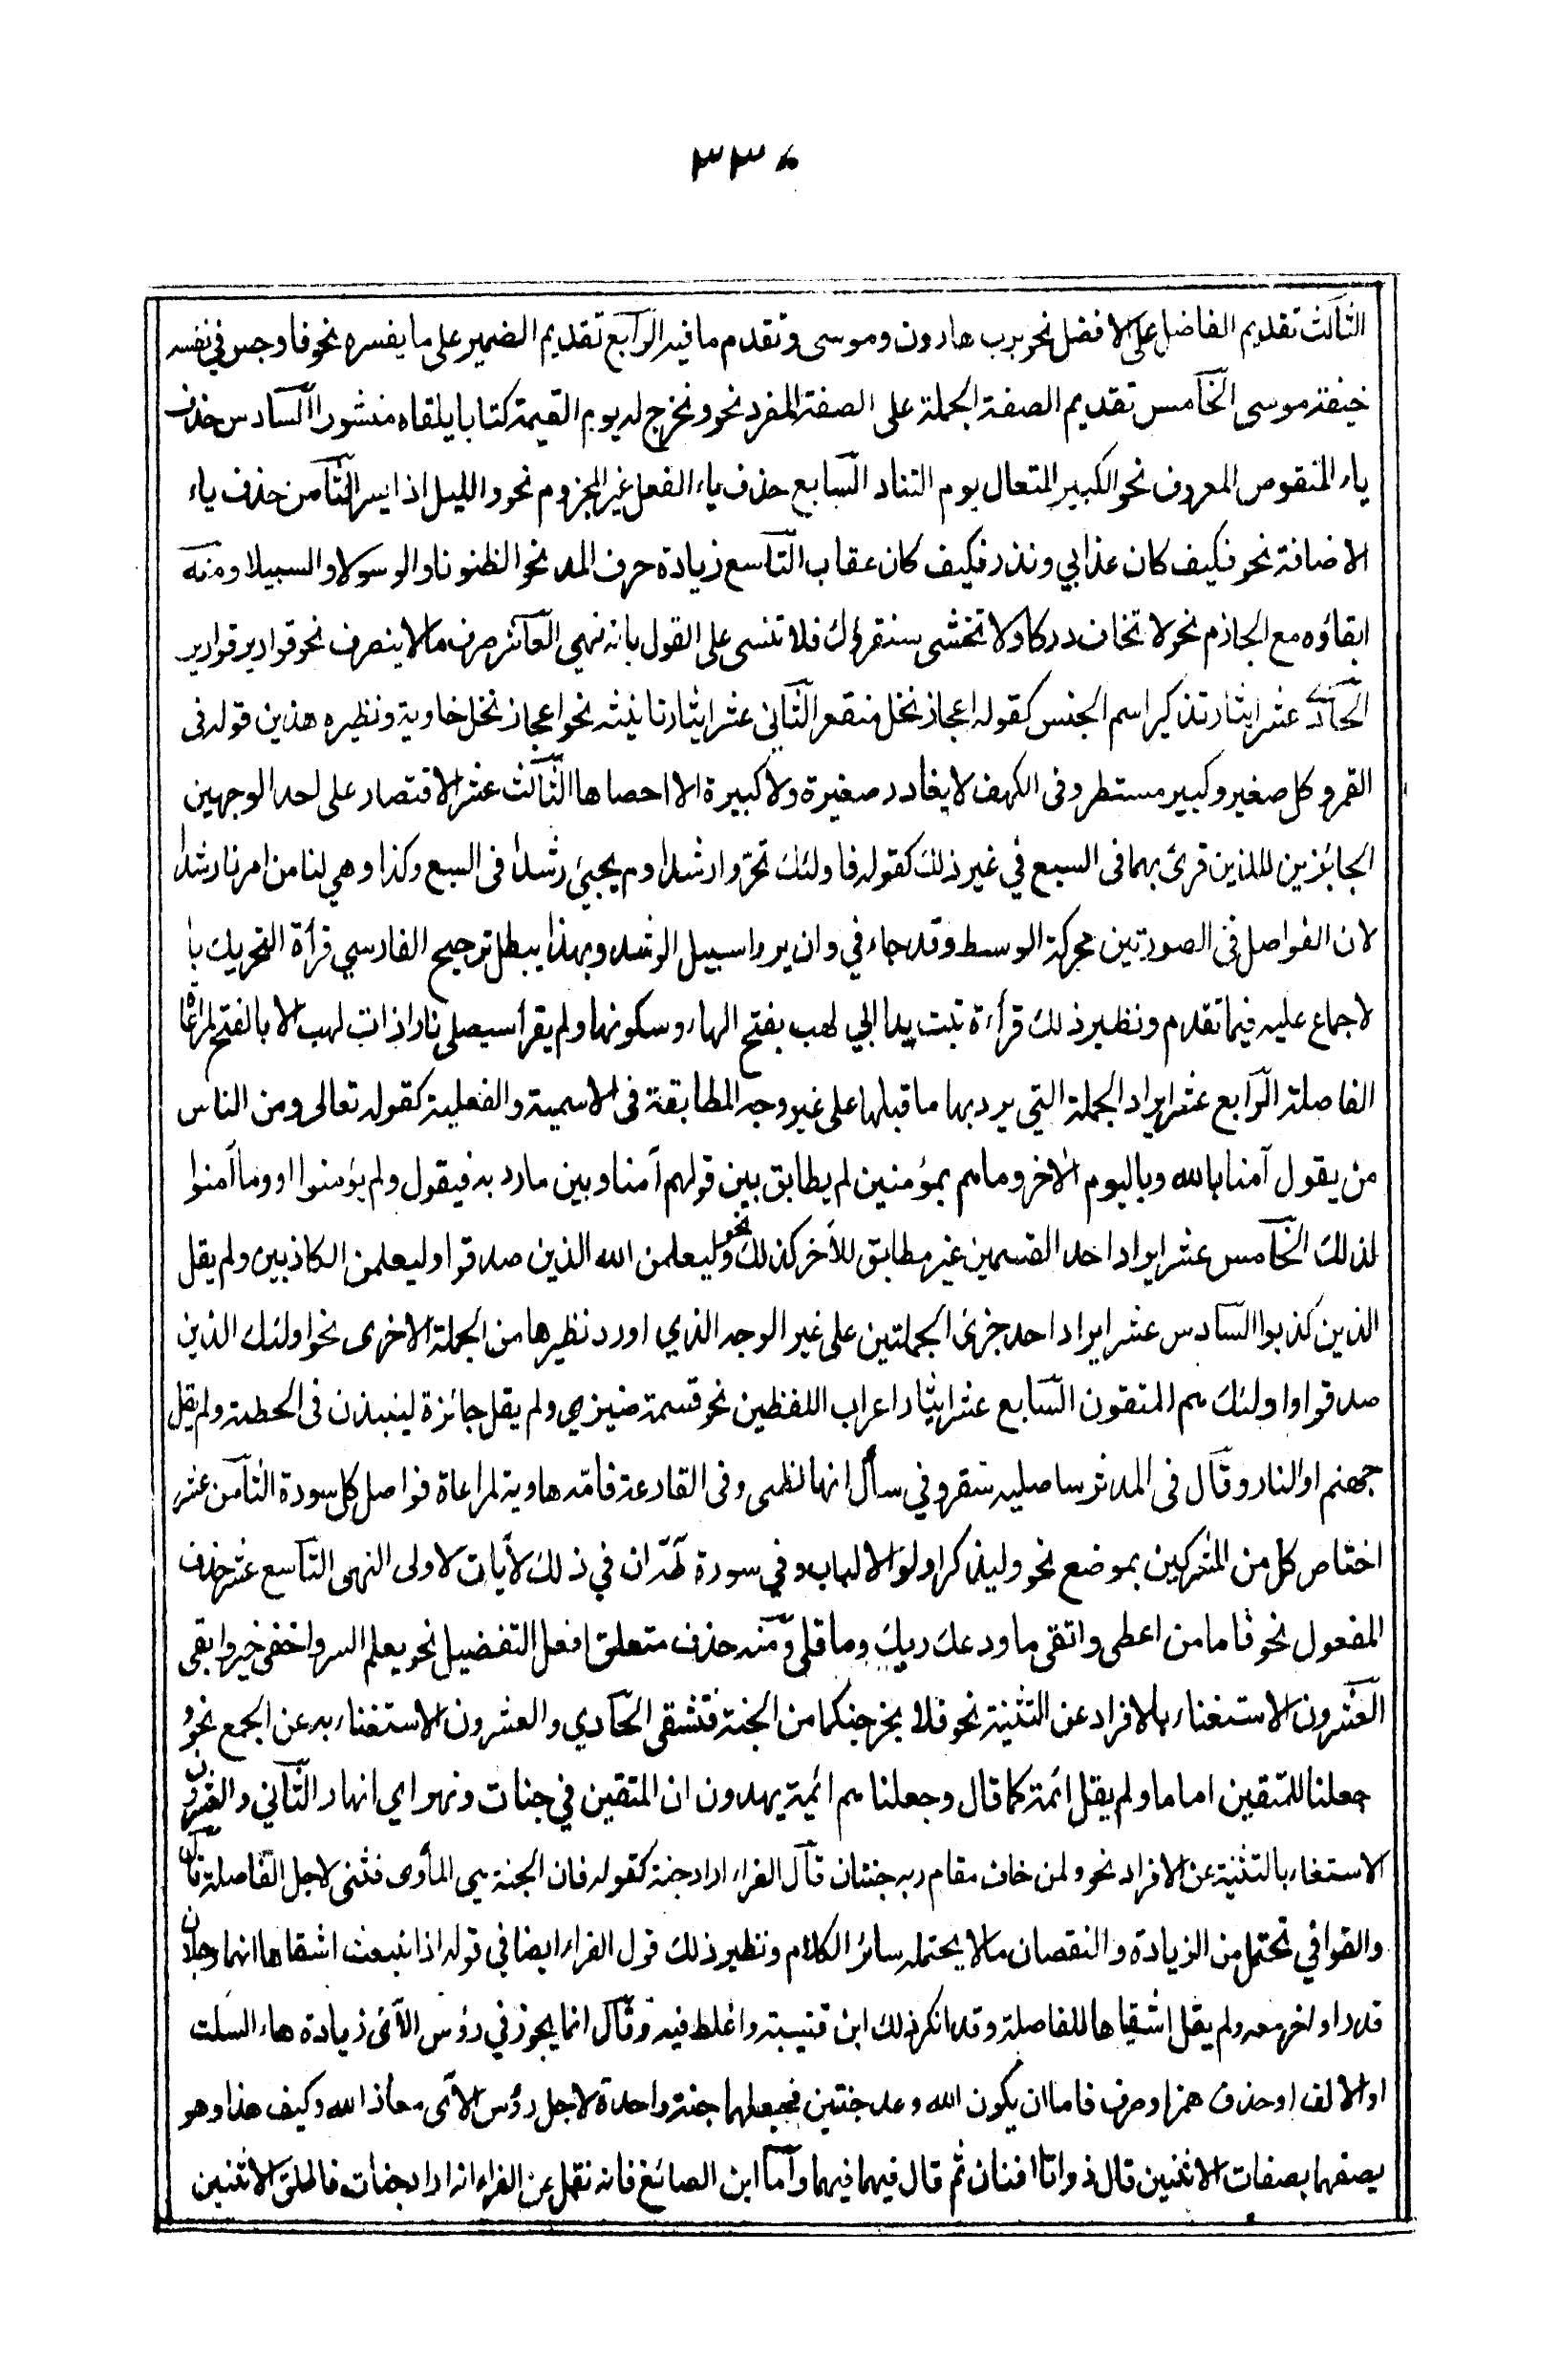 ٣٣٠
الثالث تقديم الفاضل على الافضل نحو برب هارون وموسى وتقدم ما فيه الرابع تقديم الضمير على ما يفسره نحو فاوجس في نفسه
خيفة موسى الخامس تقديم الصفة الجملة على الصفة المفرد نحو ونخرج له يوم القيمة كتابا يلقاه منشورا السادس حذف
ياء المنقوص المعروف نحو الكبير المتعال يوم التناد السابع حذف ياء الفعل غير المجزوم نحو والليل اذا يسر الثامن حذف ياء
الاضافة نحو فكيف كان عذابي ونذر فكيف كان عقاب التاسع زيادة حرف المد نحو الظنونا والرسولا والسبيلا ومنه
ابقاؤه مع الجازم نحو لا تخاف دركا ولا تخشى سنقرؤك فلا تنسى على القول بانه نهي العاشر صرف مالا ينصرف نحو قوارير قوارير
الحادي عشر ايثار تذكير اسم الجنس كقوله اعجاز نخل منقعر الثاني عشر ايثار تانيثه نحو اعجاز نخل خاوية ونظيره هذين قوله فى
القمر وكل صغير وكبير مستطر وفى الكهف لا يغادر صغيرة ولا كبيرة الا احصاها الثالث عشر الاقتصار على احد الوجهين
الجائزين اللذين قرئ بهما فى السبع في غير ذلك كقوله فاولئك تحروا رشدا ولم يجئ رشدا فى السبع وكذا وهي لنا من امرنا رشدا
لان الفواصل فى الصورتين محركة الوسط وقد جاء في وان يروا سبيل الرشد وبهذا يبطل ترجيح الفارسي قرأة التحريك با
لاجماع عليه فيما تقدم ونظير ذلك قرأءة تبت يدا ابي لهب بفتح الهاء وسكونها ولم يقرأ سيصلى نارا ذات لهب الا بالفتح لمراعاة
الفاصلة الرابع عشر ايراد الجملة التي يرد بها ما قبلها على غير وجه المطابقة فى الاسمية والفعلية كقوله تعالى ومن الناس
من يقول آمنا بالله وباليوم الاخر وما هم بمؤمنين لم يطابق بين قولهم آمنا وبين مارد به فيقول ولم يؤمنوا او وما آمنوا
لذلك الخامس عشر ايراد احد القسمين غير مطابق للأخر كذلك نحو وليعلمن الله الذين صدقوا وليعلمن الكاذبين ولم يقل
الذين كذبوا السادس عشر ايراد احد جزئ الجملتين على غير الوجه الذي اورد نظيرها من الجملة الاخرى نحو اولئك الذين
صدقوا واولئك هم المتقون السابع عشر ايثار اعراب اللفظين نحو قسمة ضيزي ولم يقل جائزة لينبذن فى الحطمة ولم يقل
جهنم او النار وقال فى المدثر ساصليه سقر وفي سأل انها لظى وفى القارعة فامه هاوية لمراعاة فواصل كل سورة الثامن عشر
اختاص كل من المشركين بموضع نحو وليذكر اولو الالباب وفي سورة طه ان في ذلك لأيات لاولى النهى التاسع عشر حذف
المفعول نحو فاما من اعطى واتقى ما ودعك ربك وما قلى ومنه حذف متعلق افعل التفضيل نحو يعلم السر واخفى خير وابقى
العشرون الاستغناء بالافراد عن التثنية نحو فلا يخرجنكما من الجنة فتشقى الحادي والعشرون الاستغناء به عن الجمع نحو و
جعلنا للمتقين اماما ولم يقل ائمة كما قال وجعلناهم ائمية يهدون ان المتقين في جنات ونهر اي انهار الثاني والعشرون
الاستغاء بالتثنية عن الافراد نحو ولمن خاف مقام ربه جنتان قال الفراء اراد جنة كقوله فان الجنة هي المأوى فثنى لاجل الفاصلة قال
والقوافي تحتمل من الزيادة والنقصان مالا يحتمله سائر الكلام ونظير ذلك قول الفراء ايضا في قوله اذا نبعث اشقاها انهما رجلان
قدار واخر معه ولم يقل اشقياها للفاصلة وقد انكر ذلك ابن قتيبة واغلظ فيه وقال انما يجوز في رؤس الآى زيادة هاء السكت
او الالف او حذف همز او حرف فاما ان يكون الله وعد جنتين فيجعلهما جنة واحدة لاجل رؤس الآى معاذ الله وكيف هذا وهو
يصفهما بصفات الاثنين قال ذواتا افنان ثم قال فيهما فيهما واما ابن الصائغ فانه نقل عن الفراء انه اراد جنات فاطلق الاثنين